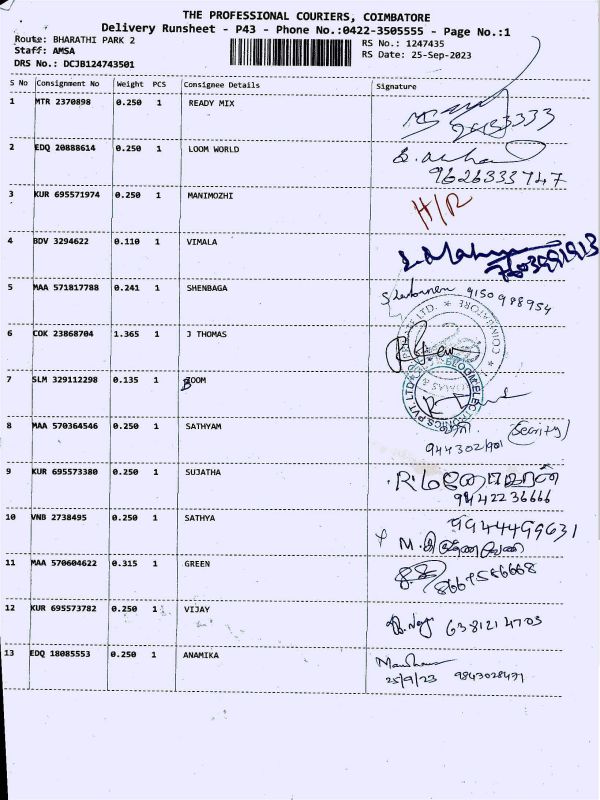 THE PROFESSIONAL COURIERS, COIMBATORE
Delivery Runsheet - P43 - Phone No.:0422-3505555 - Page No.:1
Route: BHARATHI PARK 2
Staff: AMSA
DRS No.: DCJB124743501
RS No.: 1247435
RS Date: 25-Sep-2023
S No Consignment No Weight PCS Consignee Details Signature
1 MTR 2370898 0.250 1 READY MIX
2 EDQ 20888614 0.250 1 LOOM WORLD
9626333747
3 KUR 695571974 0.250 1 MANIMOZHI H/R
4 BDV 3294622 0.110 1 VIMALA
5 MAA 571817788 0.241 1 SHENBAGA 9150988954
6 COK 23868704 1.365 1 J THOMAS
COIMBATORE
7 SLM 329112298 0.135 1 ZOOM
BLOOM ELECTRONICS PVT. LTD
8 MAA 570364546 0.250 1 SATHYAM
9 KUR 695573380 0.250 1 SUJATHA
9442236666
10 VNB 2738495 0.250 1 SATHYA 9944499631
11 MAA 570604622 0.315 1 GREEN
8669586668
12 KUR 695573782 0.250 1 VIJAY 6381214703
13 EDQ 18085553 0.250 1 ANAMIKA
25/9/23 9843028471